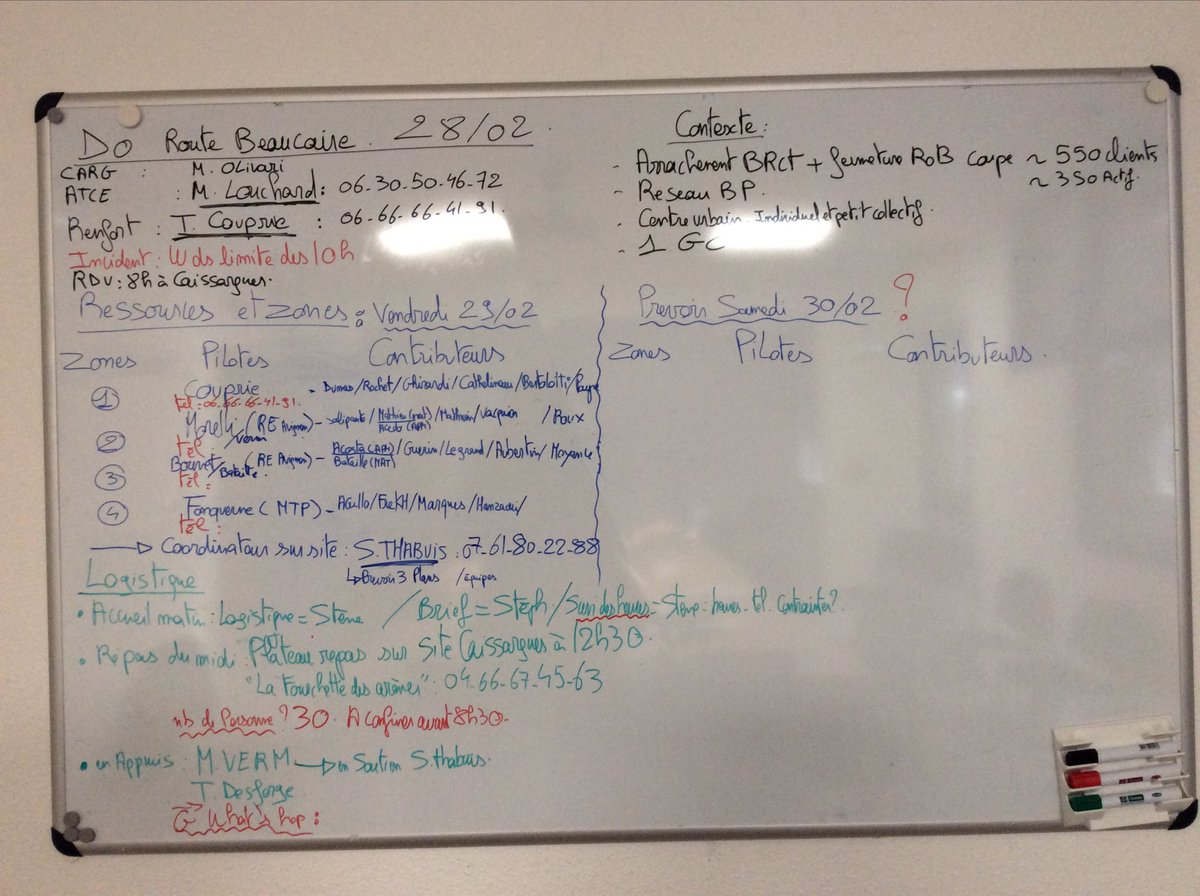 DO Route Beaucaire. 28/02.
CARG : M. Olivari
ATCE : M. Louchard : 06-30-50-46-72
Renfort : T. Couprie : 06-66-66-41-91.
Incident : W ds limite des 10h
RDV : 8h à Caissargues.
Contexte :
- Arrachement BRct + fermeture RoB coupe ~ 550 clients
~ 350 Actif.
- Reseau BP.
- Centre urbain. Individuel et petit collectif.
- 1 GC
Ressources et zones : Vendredi 29/02
Zones Pilotes Contributeurs
1 Couprie - Dumas/Rochet/Ghirardi/Cathelineau/Bertolotti/
tel : 06-66-66-41-91.
2 Morelli (RE Avignon) - /Mathieu (mat)/Mathieu/ /Roux
Acedo (APH)
tel :
3 Bouvet/Bataille (RE Avignon) - Acosta (APH)/Guerin/Legrand/Aubertin/Mayence
Bataille (MAT)
tel :
4 Fonquerne (MTP) - /Marques/Hamzaoui/
tel :
→ Coordinateur sur site : S. THABUIS : 07-61-80-22-88
↳ Prevoir 3 Plans /équipes
Prevoir Samedi 30/02 ?
Zones Pilotes Contributeurs.
Logistique
• Accueil matin : Logistique = Stène / Brief = Stéph / Suivi des heures = Stène : heures - tel. Contraintes ?
• Repas du midi : Plateau repas sur Site Caissargues à 12h30.
"La Fourchette des arènes" : 04-66-67-45-63
nb de Personne ? 30. A confirmer avant 8h30-
• en Appuis : M. VERM → en Soutien S. thabuis.
T. Desforge
G What's hap :